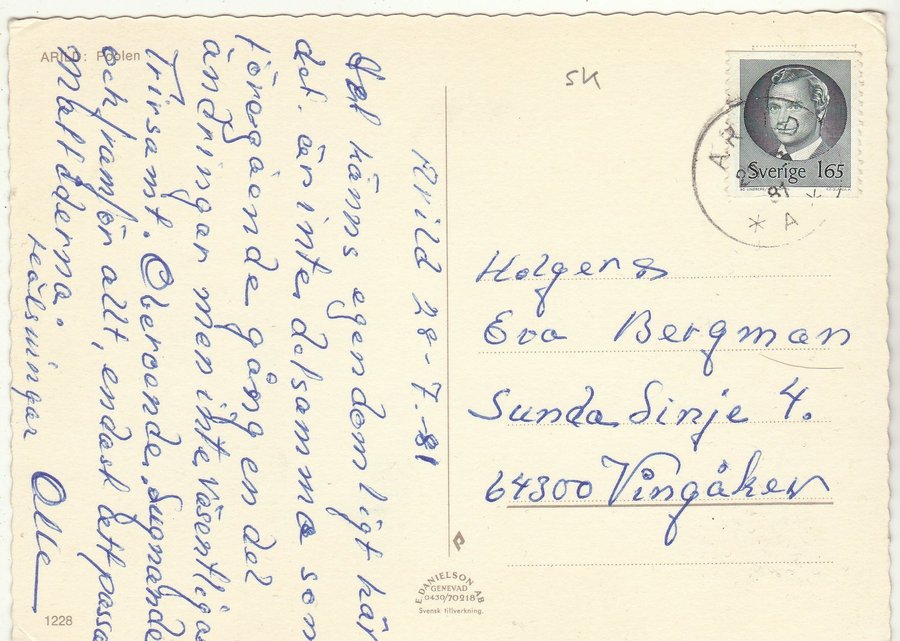 ARILD: Poolen
SK
Sverige 165
81
A
Arild 28-7-81
Det känns egendomligt här
det är inte detsamma som
föregående gång en del
ändringar men inte väsentliga
Trivsamt. Oberoende, lugnande
och framför allt, endast att passa
mattiderna.
Hälsningar Olle
Holger o
Eva Bergman
Sunda Linje 4.
64300 Vingåker
E. DANIELSON AB
GENEVAD
0430/70218
Svensk tillverkning.
1228